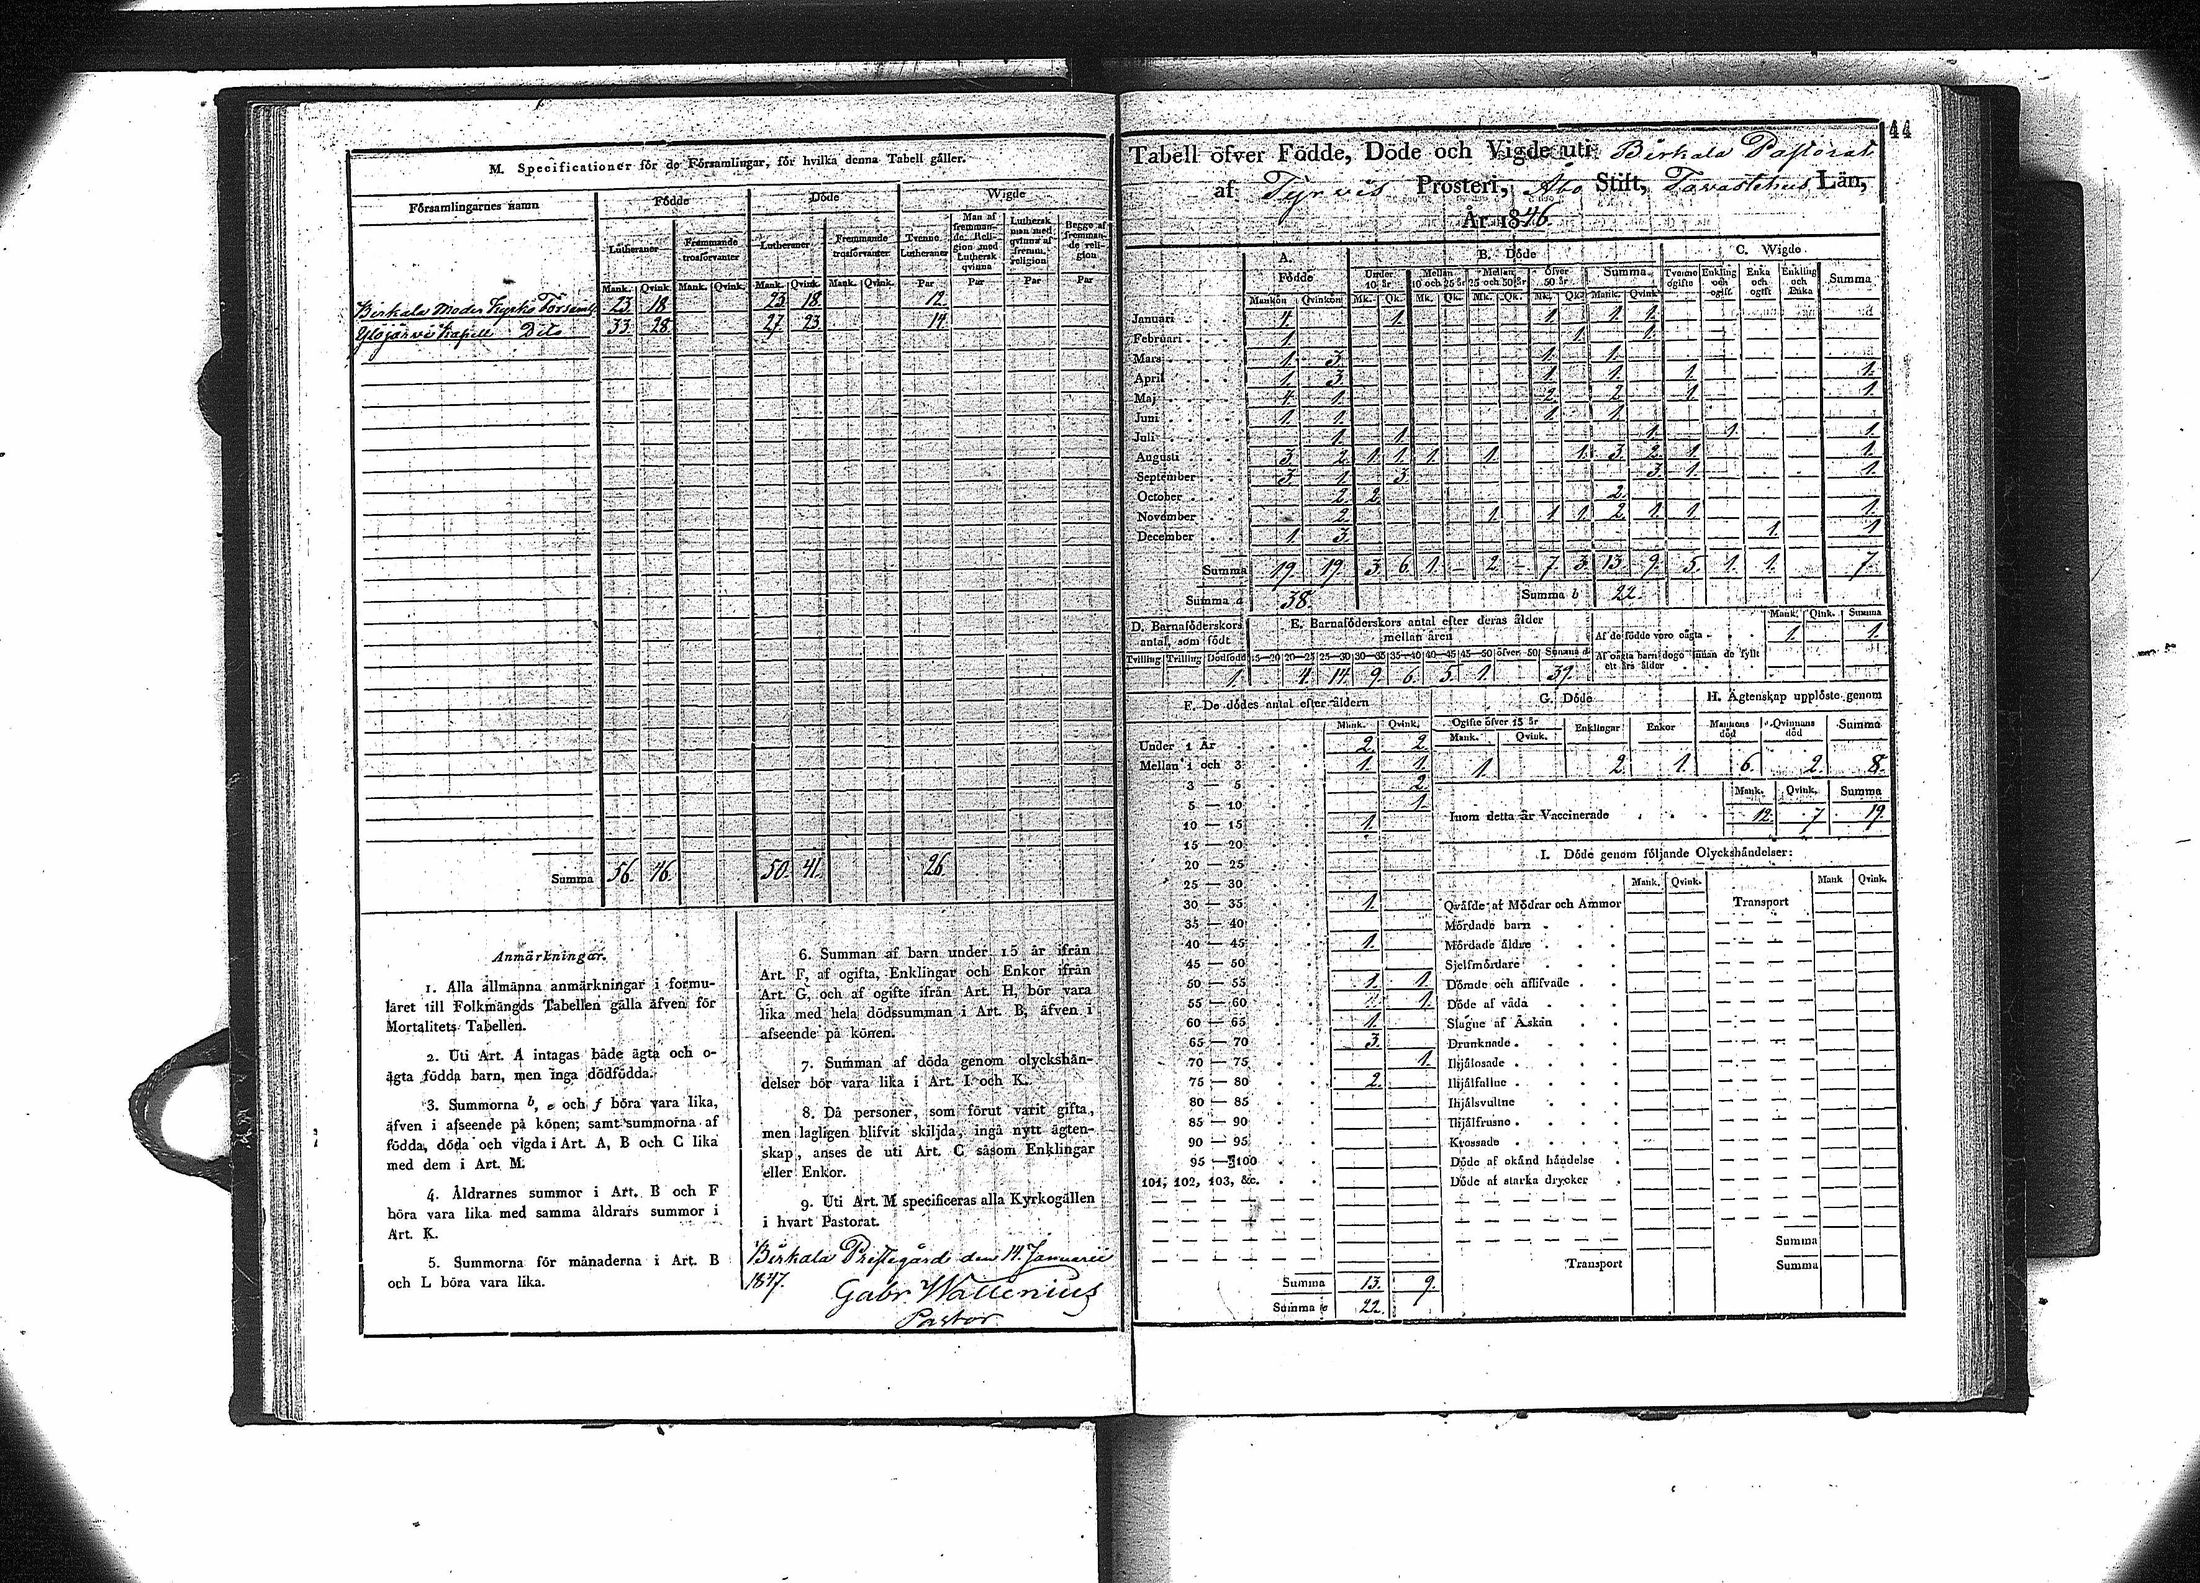 M. Specificationer för de Församlingar, för hvilka denna Tabell gäller.
Församlingarnes namn
Födde
Döde
Wigde
Lutheraner
Fremmande trosförvanter
Lutheraner
Fremmande trosförvanter
Tvenne Lutheraner
Man af fremmande Religion med Luthersk qvinna
Luthersk man med qvinna af fremm. religion
Begge af fremmande religion
Mank. Qvink. Mank. Qvink. Mank. Qvink. Mank. Qvink. Par Par Par Par
Birkala Moder Kyrko Församl. 23. 18. 23. 18. 12.
Ylöjärvi Kapell Dito 33. 28. 27. 23. 14.
Summa 56. 46. 50. 41. 26.
Anmärkningar.
1. Alla allmänna anmärkningar i formu-
läret till Folkmängds Tabellen gälla äfven för
Mortalitets Tabellen.
2. Uti Art. A intagas både ägta och o-
ägta födda barn, men inga dödfödda.
3. Summorna b, e och f böra vara lika,
äfven i afseende på könen; samt summorna af
födda, döda och vigda i Art. A, B och C lika
med dem i Art. M.
4. Åldrarnes summor i Art. B och F
böra vara lika med samma åldrars summor i
Art. K.
5. Summorna för månaderna i Art. B
och L böra vara lika.
6. Summan af barn under 15 år ifrån
Art. F, af ogifta, Enklingar och Enkor ifrån
Art. G, och af ogifte ifrån Art. H, bör vara
lika med hela dödssumman i Art. B, äfven i
afseende på könen.
7. Summan af döda genom olyckshän-
delser bör vara lika i Art. I och K.
8. Då personer, som förut varit gifta,
men lagligen blifvit skiljda, ingå nytt ägten-
skap, anses de uti Art. C såsom Enklingar
eller Enkor.
9. Uti Art. M specificeras alla Kyrkogällen
i hvart Pastorat.
Birkala Prestegård den 14. Januarii
1847.
Gabr. Wallenius
Pastor
44
Tabell öfver Födde, Döde och Vigde uti Birkala Pastorat
af Tyrvis Prosteri, Åbo Stift, Tavastehus Län,
År 1846
A. Födde
B. Döde
C. Wigde
Under 10 år
Mellan 10 och 25 år
Mellan 25 och 50 år
Öfver 50 år
Summa
Tvenne ogifte
Enkling och ogift
Enka och ogift
Enkling och Enka
Summa
Mankön Qvinkön Mk. Qk. Mk. Qk. Mk. Qk. Mk. Qk. Mank. Qvink.
Januari 4. 1. 1. 1. 1.
Februari 1. 1. 1.
Mars 1. 3. 1. 1.
April 1. 3. 1. 1. 1. 1.
Maj 4. 1. 2. 2. 1. 1.
Juni 1. 1. 1. 1.
Juli 1. 1. 1. 1. 1.
Augusti 3. 2. 1. 1. 1. 1. 1. 3. 2. 1. 1.
September 3. 1. 3. 3. 1. 1.
October 2. 2. 2.
November 2. 1. 1. 1. 2. 1. 1. 1.
December 1. 3. 1. 1.
Summa 19. 19. 3. 6. 1. – 2. – 7. 3. 13. 9. 5. 1. 1. 7.
Summa a 38. Summa b 22.
D. Barnaföderskors antal, som födt
Tvilling Trilling Dödfödd
1.
E. Barnaföderskors antal efter deras ålder mellan åren
15—20 20—25 25—30 30—35 35—40 40—45 45—50 öfver 50 Summa d
4. 14. 9. 6. 5. 1. 39.
Mank. Qink. Summa
Af de födde voro oägta 1. 1.
Af oägta barn dogo innan de fyllt ett års ålder
F. De dödes antal efter åldern
Mank. Qvink.
Under 1 År 2. 2.
Mellan 1 och 3 1. 1.
3 — 5 2.
5 — 10 1.
10 — 15 1.
15 — 20
20 — 25
25 — 30
30 — 35 1.
35 — 40
40 — 45 1.
45 — 50
50 — 55 1. 1.
55 — 60 1.
60 — 65 1.
65 — 70 3.
70 — 75 1.
75 — 80 2.
80 — 85
85 — 90
90 — 95
95 — 100
101, 102, 103, &c.
Summa 13. 9.
Summa e 22.
G. Döde
Ogifte öfver 15 år
Mank. Qvink.
Enklingar
Enkor
1. 2. 1.
H. Ägtenskap upplöste genom
Mannens död
Qvinnans död
Summa
6. 2. 8.
Mank. Qvink. Summa
Inom detta år Vaccinerade 12. 7 19.
I. Döde genom följande Olyckshändelser:
Mank. Qvink. Mank Qvink.
Qväfde af Mödrar och Ammor Transport
Mördade barn
Mördade äldre
Sjelfmördare
Dömde och aflifvade
Döde af våda
Slagne af Åskan
Drunknade
Ihjälosade
Ihjälfallne
Ihjälsvultne
Ihjälfrusne
Krossade
Döde af okänd händelse
Döde af starka drycker
Summa
Transport Summa